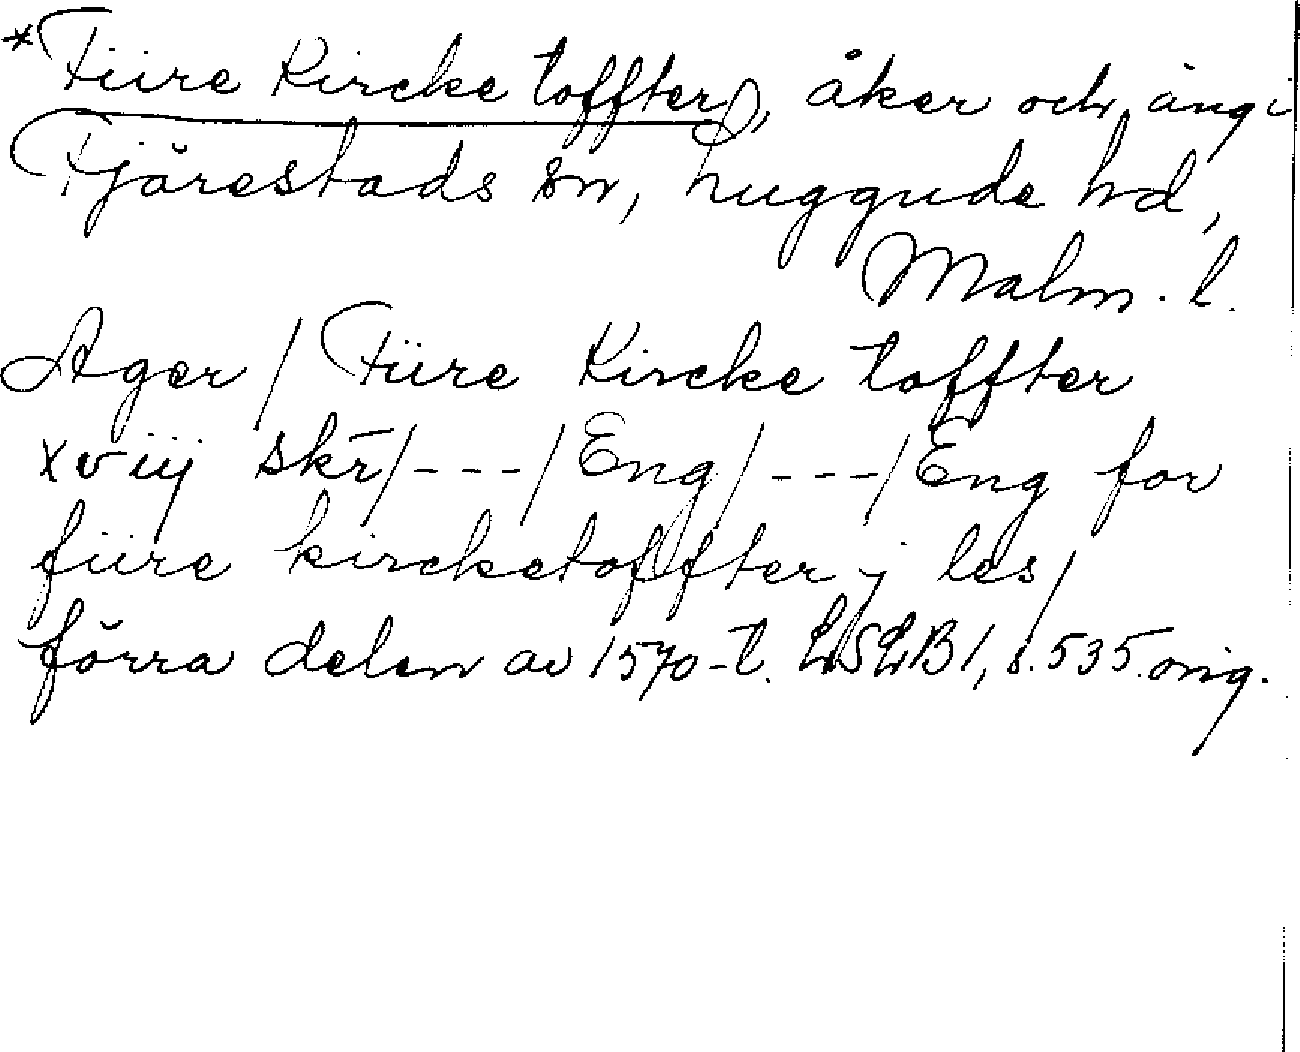 *Fiire Kircke toffter, åker och äng i
Fjärestads sn, Luggude hd,
Malm. l.
Ager / Fiire Kircke toffter
xviij skr̄/ - - - / Eng / - - - / Eng for
fiire kircketoffter j les /
förra delen av 1570-t. LSLB 1, s. 535. orig.